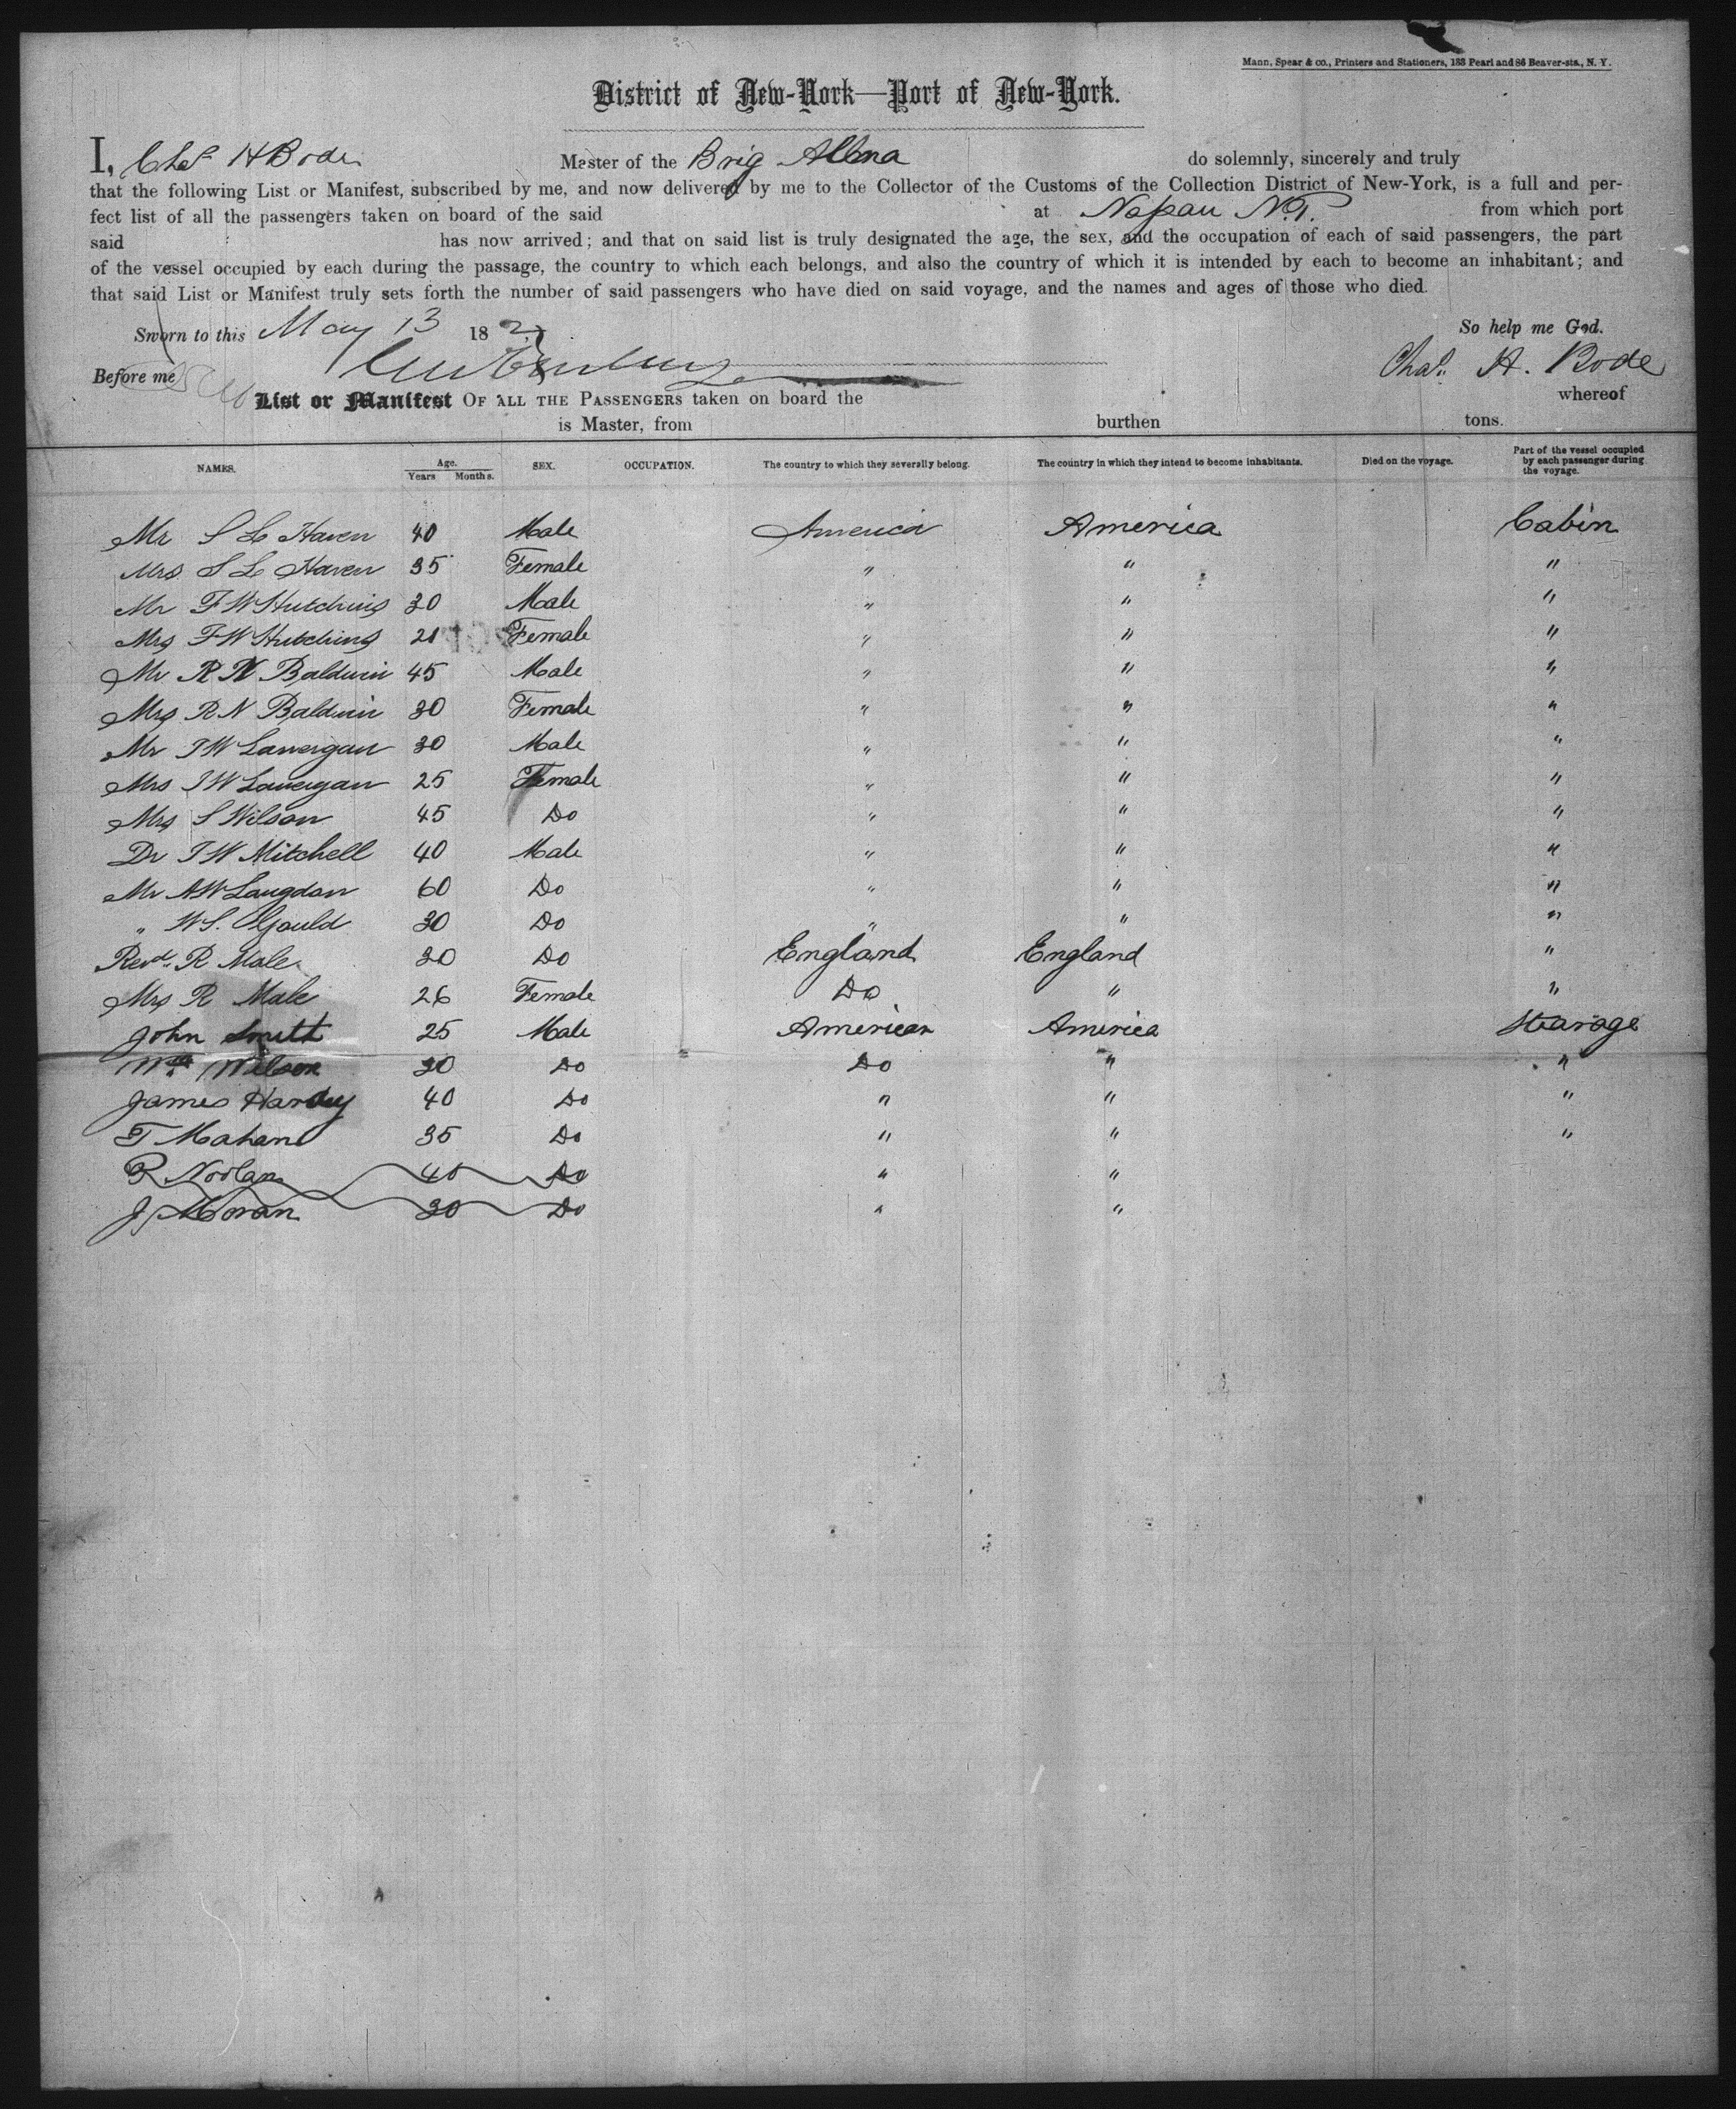 Mann, Spear & co., Printers and Stationers, 133 Pearl and 86 Beaver-sts., N. Y.
District of New-York—Port of New-York.
I, Chs H Bode Master of the Brig Alma do solemnly, sincerely and truly
that the following List or Manifest, subscribed by me, and now delivered by me to the Collector of the Customs of the Collection District of New-York, is a full and per-
fect list of all the passengers taken on board of the said at Nassau N.P. from which port
said has now arrived; and that on said list is truly designated the age, the sex, and the occupation of each of said passengers, the part
of the vessel occupied by each during the passage, the country to which each belongs, and also the country of which it is intended by each to become an inhabitant; and
that said List or Manifest truly sets forth the number of said passengers who have died on said voyage, and the names and ages of those who died.
Sworn to this May 13 18 So help me God.
Before me Chas. H. Bode
List or Manifest OF ALL THE PASSENGERS taken on board the whereof
is Master, from burthen tons.
NAMES. Age. Years Months. SEX. OCCUPATION. The country to which they severally belong. The country in which they intend to become inhabitants. Died on the voyage. Part of the vessel occupied by each passenger during the voyage.
Mr S L Haven 40 Male America America Cabin
Mrs S L Haven 35 Female " " "
Mr F W Hutchins 30 Male " " "
Mrs F W Hutchins 21 Female " " "
Mr R N Baldwin 45 Male " " "
Mrs R N Baldwin 30 Female " " "
Mr T W Lanergan 30 Male " " "
Mrs T W Lanergan 25 Female " " "
Mrs S Wilson 45 Do " " "
Dr T W Mitchell 40 Male " " "
Mr A W Langdon 60 Do " " "
" W S. Gould 30 Do " " "
Revd. R Male 30 Do England England "
Mrs R Male 26 Female Do " "
John Smith 25 Male American America Stearage
Wm Wilson 30 Do Do " "
James Hardy 40 Do " " "
T Mahan 35 Do " " "
P Noolan 40 Do " "
J Moran 30 Do " "